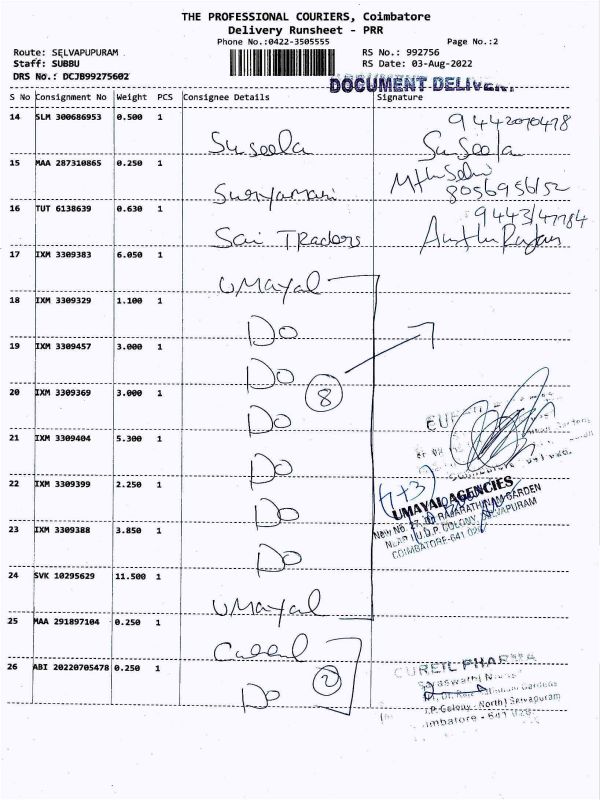 THE PROFESSIONAL COURIERS, Coimbatore
Delivery Runsheet - PRR
Phone No.:0422-3505555 Page No.:2
Route: SELVAPUPURAM RS No.: 992756
Staff: SUBBU RS Date: 03-Aug-2022
DRS No.: DCJB99275602
DOCUMENT DELIVERY
S No Consignment No Weight PCS Consignee Details Signature
14 SLM 300686953 0.500 1 Suseela 9442070478 Suseela
15 MAA 287310865 0.250 1 Suryamani 8056956152
16 TUT 6138639 0.630 1 Sai Traders 9443147784
17 IXM 3309383 6.050 1 Umayal
18 IXM 3309329 1.100 1 Do
19 IXM 3309457 3.000 1 Do
8
20 IXM 3309369 3.000 1 Do
21 IXM 3309404 5.300 1 Do
22 IXM 3309399 2.250 1 Do
(7+3)
UMAYAL AGENCIES
RAJARATHINAM GARDEN
NEAR U.D.P. COLONY, SELVAPURAM
COIMBATORE-641
23 IXM 3309388 3.850 1 Do
24 SVK 10295629 11.500 1 Umayal
25 MAA 291897104 0.250 1
26 ABI 20220705478 0.250 1 Do
2
CUREIL PHARMA
Saraswathi
Gardens
Colony - North) Selvapuram